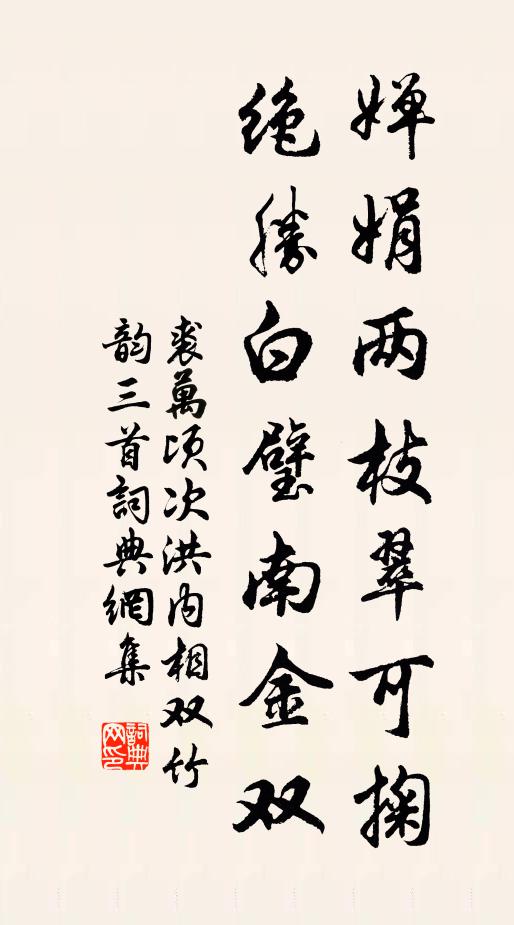 婵娟两枝翠可掬
绝勝白璧南金双
裘萬顷次洪内相双竹
韵三首詞典網集
詞典网印